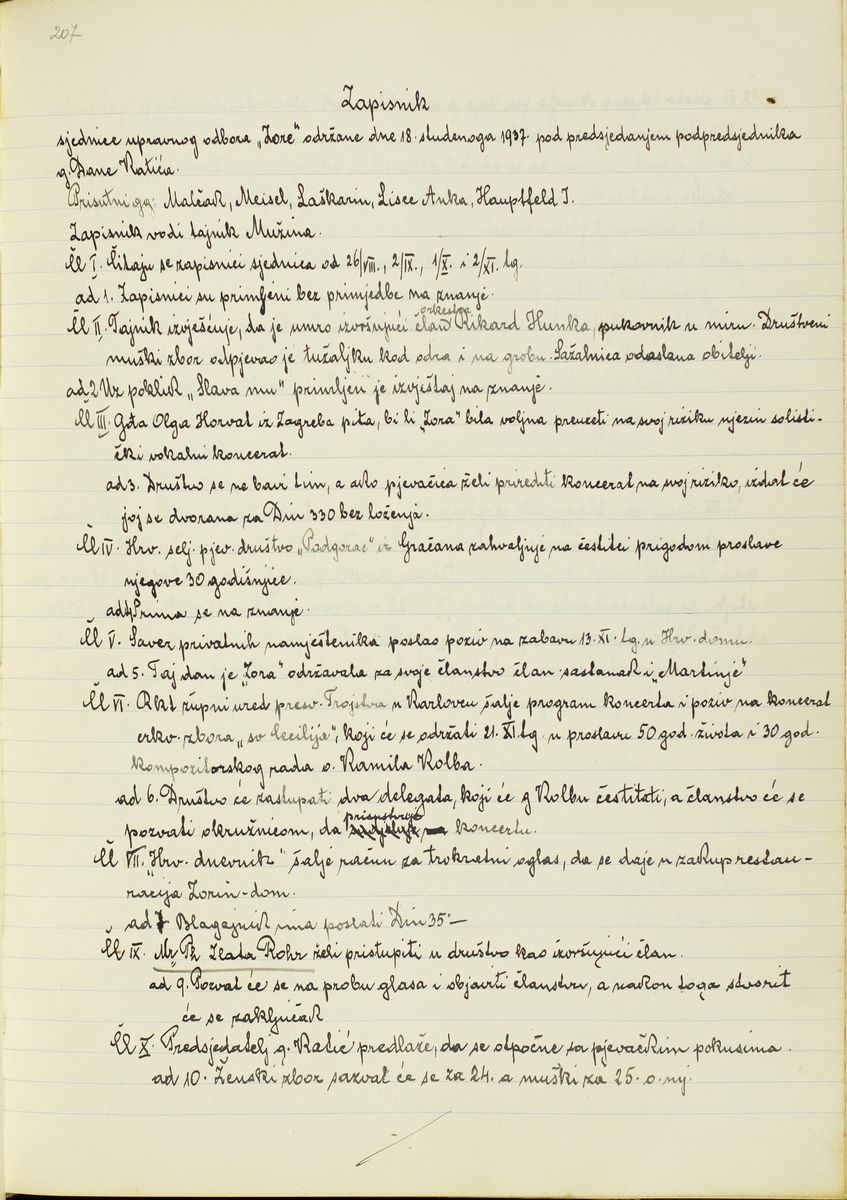 207
Zapisnik
sjednice upravnog odbora „Zore“ održane dne 18. studenoga 1937. pod predsjedanjem podpredsjednika
g. Dane Katića.
Prisutni gg: Malčak, Meisel, Laškarin, Lisec Anka, Hauptfeld I.
Zapisnik vodi tajnik Mužina.
Čl I. Čitaju se zapisnici sjednica od 26/VIII., 2/IX., 1/X. i 2/XI. tg.
ad 1. Zapisnici su primljeni bez primjedbe na znanje.
Čl II. Tajnik izvješćuje, da je umro izvršujući član orkestra Rikard Hunka, pukovnik u miru. Društveni
muški zbor odpjevao je tužaljku kod odra i na grobu. Sažalnica odaslana obitelji.
ad 2 Uz poklik „Slava mu“ primljen je izvještaj na znanje.
Čl III. Gđa Olga Horvat iz Zagreba pita, bi li „Zora“ bila voljna preuzeti na svoj riziku njezin solisti-
čki vokalni koncerat.
ad 3. Društvo se ne bavi tim, a ako pjevačica želi prirediti koncerat na svoj riziko, izdat će
joj se dvorana za Din 330 bez loženja.
Čl IV. Hrv. selj. pjev. društvo „Podgorac“ iz Gračana zahvaljuje na čestitci prigodom proslave
njegove 30 godišnjice.
ad 4 Prima se na znanje.
Čl V. Savez privatnih namještenika poslao poziv na zabavu 13. XI. tg. u Hrv. domu.
ad 5. Taj dan je „Zora“ održavala za svoje članstvo član. sastanak i „Martinje“
Čl VI. Rkt župni ured presv. Trojstva u Karlovcu šalje program koncerta i poziv na koncerat
crkv. zbora „sv Cecilija“, koji će se održati 21. XI. tg. u proslavu 50 god. života i 30 god.
kompozitorskog rada o. Kamila Kolba.
ad 6. Društvo će zastupati dva delegata, koji će g Kolbu čestitati, a članstvo će se
pozvati okružnicom, da prisustvuje koncertu.
Čl VII. „Hrv. dnevnik“ šalje račun za trokratni oglas, da se daje u zakup restau-
racija Zorin-dom.
ad 7 Blagajnik ima poslati Din 35.—
Čl IX. Mr. Ph Zlata Rohr želi pristupiti u društvo kao izvršujući član.
ad 9. Pozvat će se na probu glasa i objaviti članstvu, a nakon toga stvorit
će se zaključak
Čl X. Predsjedatelj g. Katić predlaže, da se otpočne sa pjevačkim pokusima.
ad 10. Ženski zbor sazvat će se za 24. a muški za 25. o. mj.